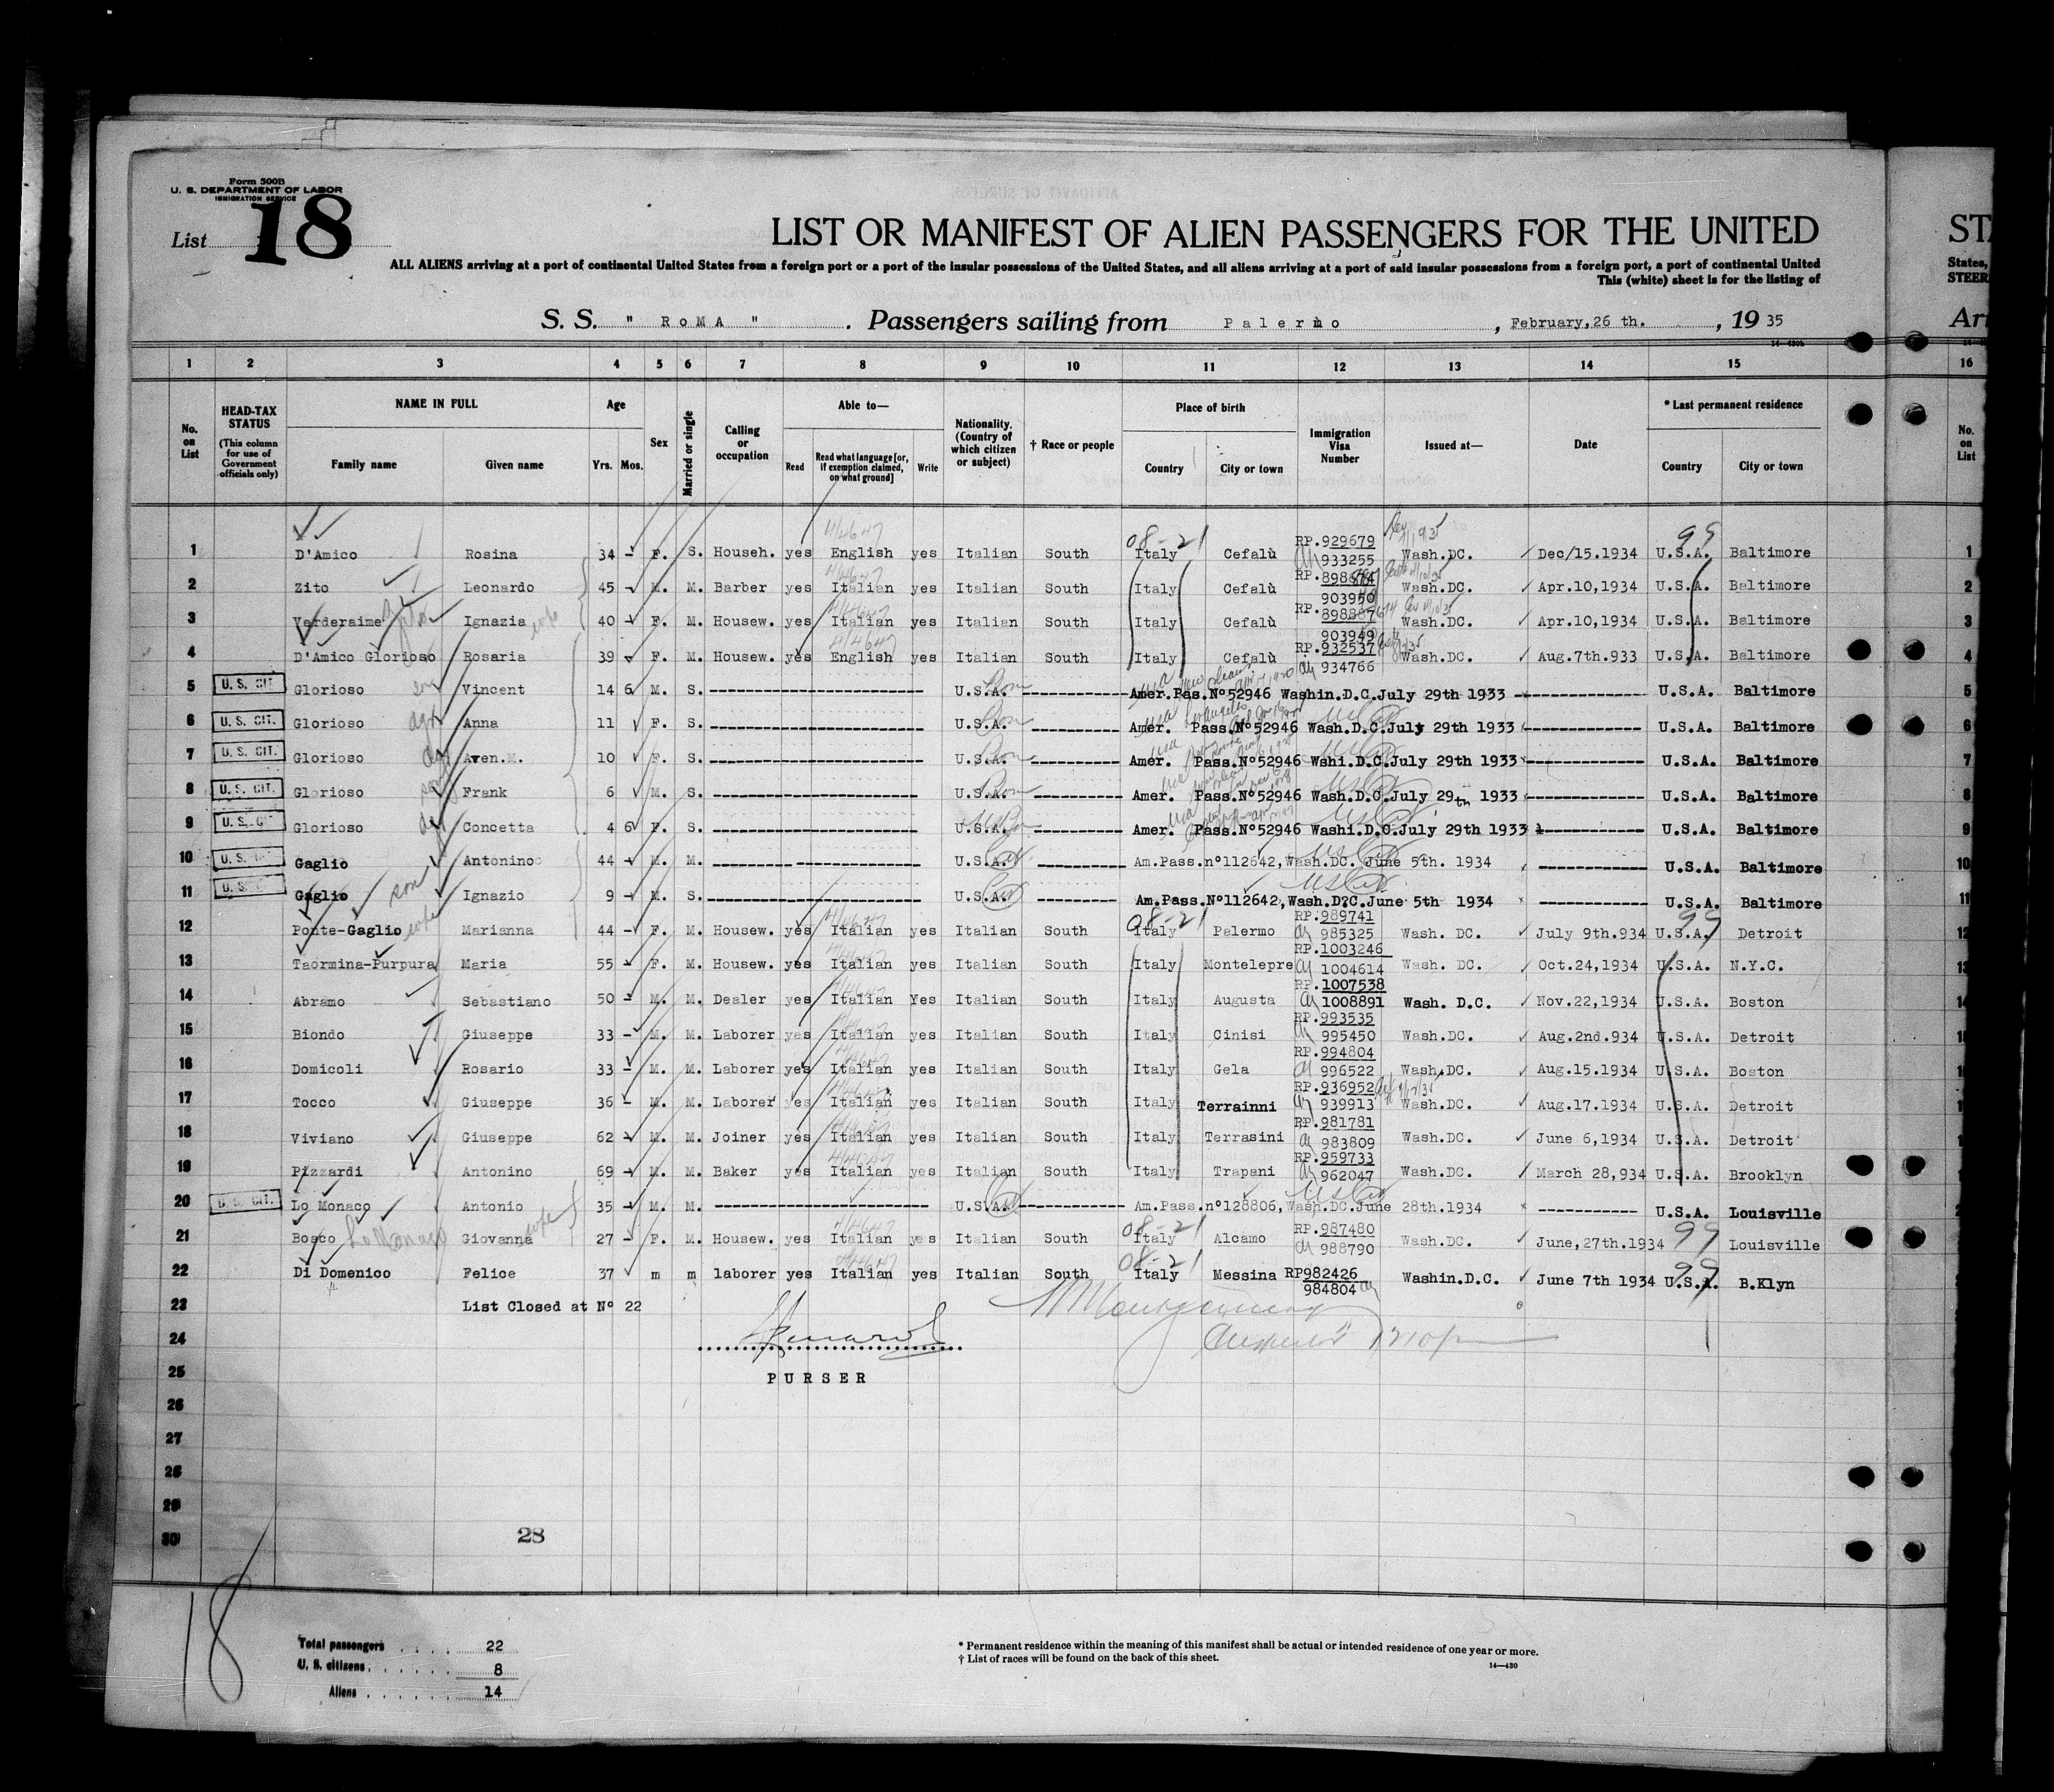 Form 500B
U. S. DEPARTMENT OF LABOR
IMMIGRATION SERVICE
List 18
LIST OR MANIFEST OF ALIEN PASSENGERS FOR THE UNITED
STA
ALL ALIENS arriving at a port of continental United States from a foreign port or a port of the insular possessions of the United States, and all aliens arriving at a port of said insular possessions from a foreign port, a port of continental United
States,
This (white) sheet is for the listing of
STEER
S. S. " RoMA " . Passengers sailing from Palermo , February,26 th. , 19 35
Arr
1 2 3 4 5 6 7 8 9 10 11 12 13 14 15 16
No. on List
HEAD-TAX STATUS (This column for use of Government officials only)
NAME IN FULL Family name Given name
Age Yrs. Mos.
Sex
Married or single
Calling or occupation
Able to— Read Read what language [or, if exemption claimed, on what ground] Write
Nationality. (Country of which citizen or subject)
† Race or people
Place of birth Country City or town
Immigration Visa Number
Issued at—
Date
* Last permanent residence Country City or town
No. on List
1 D'Amico Rosina 34 - F. S. Househ. yes English yes Italian South 08-21 Italy Cefalù RP.929679 933255 Wash.DC. Dec/15.1934 99 U.S.A. Baltimore 1
2 Zito Leonardo 45 M. M. Barber yes Italian yes Italian South Italy Cefalù RP. 903950 Wash.DC. Apr.10,1934 U.S.A. Baltimore 2
3 Verderaime Zito Ignazia wife 40 F. M. Housew. yes Italian yes Italian South Italy Cefalù RP. 903949 Wash.DC. Apr.10,1934 U.S.A. Baltimore 3
4 D'Amico Glorioso Rosaria 39 F. M. Housew. yes English yes Italian South Italy Cefalù RP.932537 934766 Wash.DC. Aug.7th.933 U.S.A. Baltimore 4
5 U. S. CIT. Glorioso son Vincent 14 6 M. S. U.S.A. Amer.Pas.Nº52946 Washin.D.C.July 29th 1933 U.S.A. Baltimore 5
6 U. S. CIT. Glorioso dgt Anna 11 F. S. U.S.A. Amer. Pass.Nº52946 Wash.D.C.July 29th 1933 U.S.A. Baltimore 6
7 U. S. CIT. Glorioso dgt Aven.M. 10 F. S. U.S.A. Amer. Pass.Nº52946 Washi.D.C.July 29th 1933 U.S.A. Baltimore 7
8 U. S. CIT. Glorioso son Frank 6 M. S. U.S.A. Amer. Pass.Nº52946 Wash.D.C.July 29th 1933 U.S.A. Baltimore 8
9 U. S. CIT Glorioso dgt Concetta 4 6 F. S. U.S.A. Amer. Pass.Nº52946 Washi.D.C.July 29th 1933 U.S.A. Baltimore 9
10 U. S. CIT Gaglio Antonino 44 M. M. U.S.A. Am.Pass.nº112642,Wash.DC. June 5th. 1934 U.S.A. Baltimore 10
11 U. S. C Gaglio son Ignazio 9 M. S. U.S.A. Am.Pass.Nº112642,Wash.D.C.June 5th 1934 U.S.A. Baltimore 11
12 Ponte-Gaglio wife Marianna 44 F. M. Housew. yes Italian yes Italian South 08-21 Italy Palermo RP.989741 985325 Wash. DC. July 9th.934 99 U.S.A. Detroit 12
13 Taormina-Purpura Maria 55 F. M. Housew. yes Italian yes Italian South Italy Montelepre RP.1003246 1004614 Wash. DC. Oct.24,1934 U.S.A. N.Y.C. 13
14 Abramo Sebastiano 50 M. M. Dealer yes Italian Yes Italian South Italy Augusta RP.1007538 1008891 Wash. D.C. Nov.22,1934 U.S.A. Boston 14
15 Biondo Giuseppe 33 - M. M. Laborer yes Italian yes Italian South Italy Cinisi RP.993535 995450 Wash.DC. Aug.2nd.934 U.S.A. Detroit
16 Domicoli Rosario 33 M. M. Laborer yes Italian yes Italian South Italy Gela RP.994804 996522 Wash.DC. Aug.15.1934 U.S.A. Boston
17 Tocco Giuseppe 36 - M. M. Laborer yes Italian yes Italian South Italy Terrainni RP.936952 939913 Wash.DC. Aug.17.1934 U.S.A. Detroit
18 Viviano Giuseppe 62 M. M. Joiner yes Italian yes Italian South Italy Terrasini RP.981781 983809 Wash.DC. June 6,1934 U.S.A. Detroit
19 Pizzardi Antonino 69 M. M. Baker yes Italian yes Italian South Italy Trapani RP.959733 962047 Wash.DC. March 28,934 U.S.A. Brooklyn
20 U. S. CIT. Lo Monaco Antonio 35 M. M. U.S.A. Am.Pass.nº128806,Wash.DC.June 28th.1934 U.S.A. Louisville
21 Bosco Lo Monaco Giovanna wife 27 F. M. Housew. yes Italian yes Italian South 08-21 Italy Alcamo RP.987480 988790 Wash.DC. June,27th.1934 99 Louisville
22 Di Domenico Felice 37 m m laborer yes Italian yes Italian South 08-21 Italy Messina RP982426 984804 Washin.D.C. June 7th 1934 99 U.S.A. B.Klyn
23 List Closed at Nº 22
24
25 PURSER
26
27
28
29
30 28
18
Total passengers . . . . 22
U. S. citizens . . . . . . 8
Aliens . . . . . . 14
* Permanent residence within the meaning of this manifest shall be actual or intended residence of one year or more.
† List of races will be found on the back of this sheet.
14—430